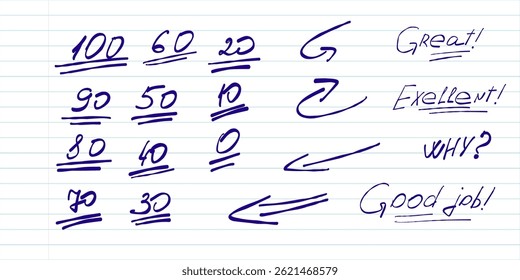 100 60 20 Great!
90 50 10 Exellent!
80 40 0 WHY?
70 30 Good job!
shutterstock.com · 2621468579